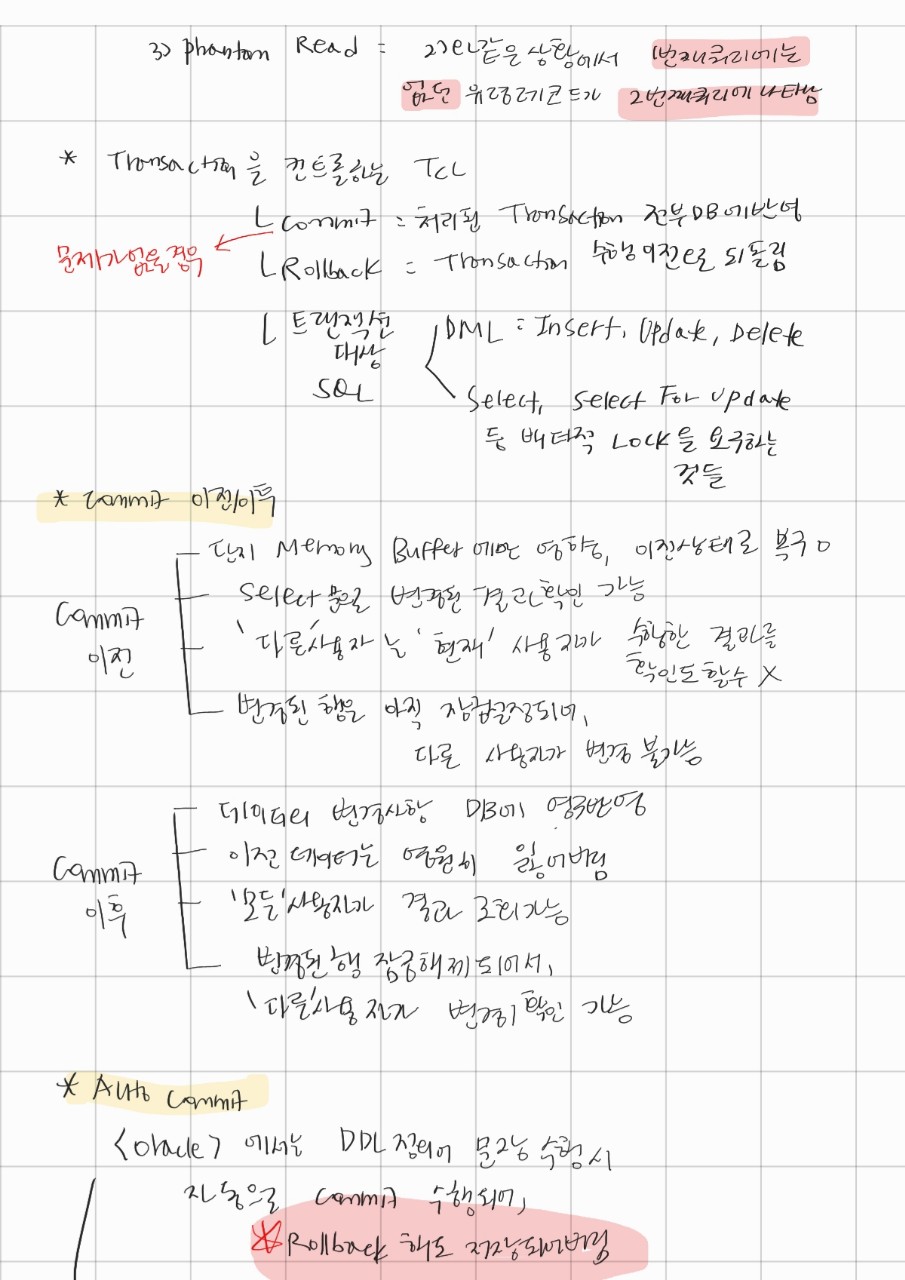 3) Phantom Read = 2)와 같은 상황에서 1번째쿼리에는
없던 유령레코드가 2번째쿼리에 나타남
* Transaction을 컨트롤하는 TCL
└ Commit = 처리된 Transaction 전부 DB에 반영
문제가 없을 경우
└ Rollback = Transaction 수행 이전으로 되돌림
└ 트랜잭션 DML = Insert, Update, Delete
대상
SQL Select, Select For Update
등 배타적 Lock을 요구하는
것들
* Commit 이전/이후
단지 Memory Buffer에만 영향, 이전상태로 복구 O
Select문으로 변경된 결과확인 가능
Commit
이전
'다른'사용자는 '현재' 사용자가 수행한 결과를
확인도할수 X
변경된 행은 아직 잠금설정되어,
다른 사용자가 변경 불가능
데이터의 변경사항 DB에 영구반영
이전 데이터는 영원히 잃어버림
Commit
이후
'모든'사용자가 결과 조회가능
변경된 행 잠금해제되어서,
'다른'사용자가 변경/확인 가능
* Auto Commit
<Oracle>에서는 DDL 정의어 문장 수행시
자동으로 Commit 수행되어,
Rollback 해도 저장되어버림